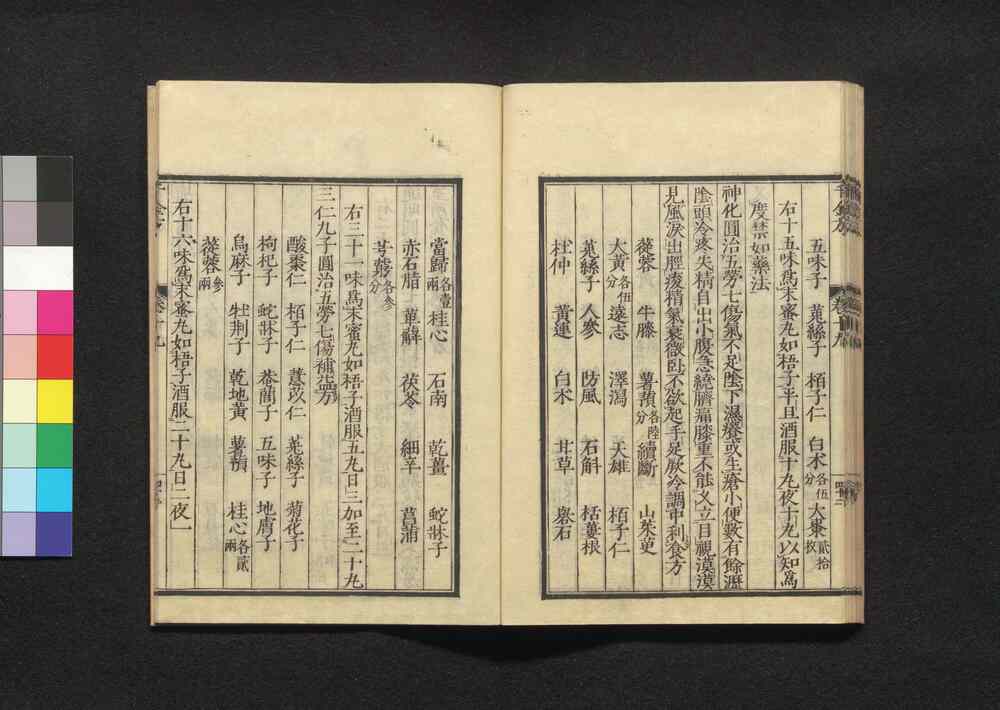 五味子 菟絲子 栢子仁 白朮各伍分 大棗貳拾枚
右十五味爲末蜜丸如梧子平旦酒服十丸夜十丸以知爲
度禁如藥法
神化圓治五勞七傷氣不足陰下濕癢或生瘡小便數有餘瀝
陰頭冷疼失精自出小腹急繞臍痛膝重不能久立目視漠漠
見風淚出脛痠精氣衰微臥不欲起手足厥冷調中利食方
蓯蓉 牛膝 薯蕷各陸分 續斷 山茱萸
大黃各伍分 遠志 澤瀉 天雄 栢子仁
菟絲子 人參 防風 石斛 栝蔞根
杜仲 黃連 白朮 甘草 礜石
當歸各壹兩 桂心 石南 乾薑 蛇牀子
赤石脂 萆薢 茯苓 細辛 菖蒲
芎藭各參分
右三十一味爲末蜜丸如梧子酒服五丸日三加至二十丸
三仁九子圓治五勞七傷補益方
酸棗仁 栢子仁 薏苡仁 菟絲子 菊花子
枸杞子 蛇牀子 菴䕡子 五味子 地膚子
烏麻子 牡荆子 乾地黃 薯蕷 桂心各貳兩
蓯蓉參兩
右十六味爲末蜜丸如梧子酒服二十丸日二夜一